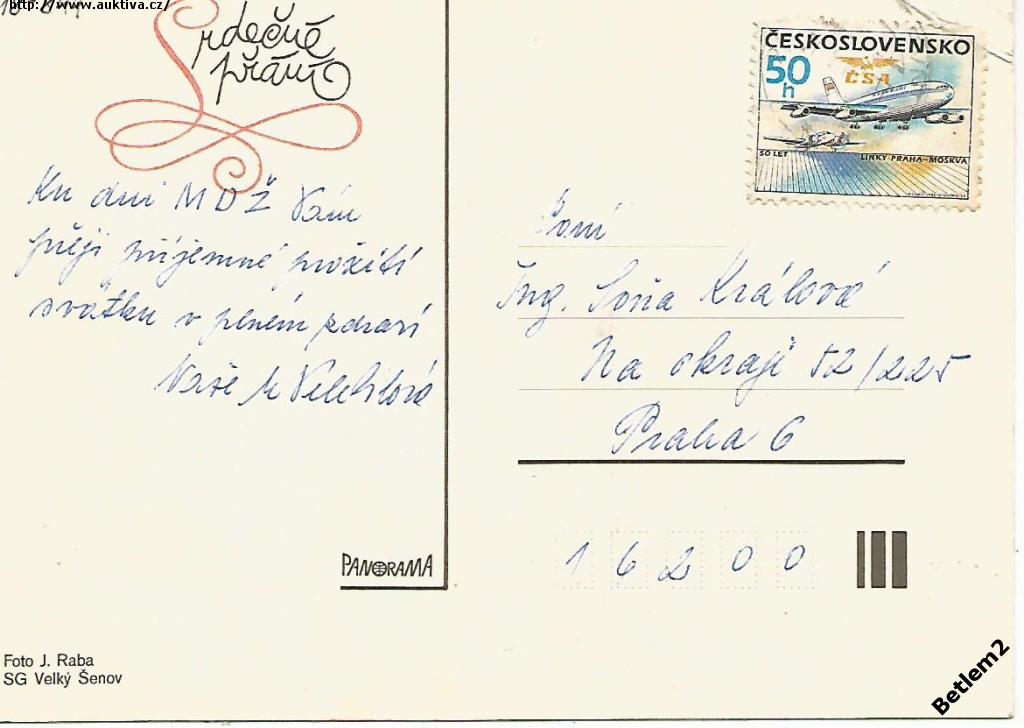 http://www.auktiva.cz/
Srdečné
přání
Ku dni MDŽ Vám
přeji příjemné prožití
svátku v plném zdraví
Vaše M
PANORAMA
Foto J. Raba
SG Velký Šenov
ČESKOSLOVENSKO
50 h
ČSA
50 LET
LINKY PRAHA-MOSKVA
Paní
Ing. Soňa Králová
Na okraji 52/225
Praha 6
16200
Betlem2